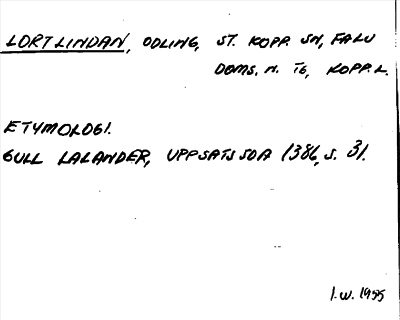 LORTLINDAN, ODLING, ST. KOPP. SN, FALU
DOMS. N. TG, KOPP. L.
ETYMOLOGI.
GULL LALANDER, UPPSATS SOA 1386, S. 31.
I.W. 1955